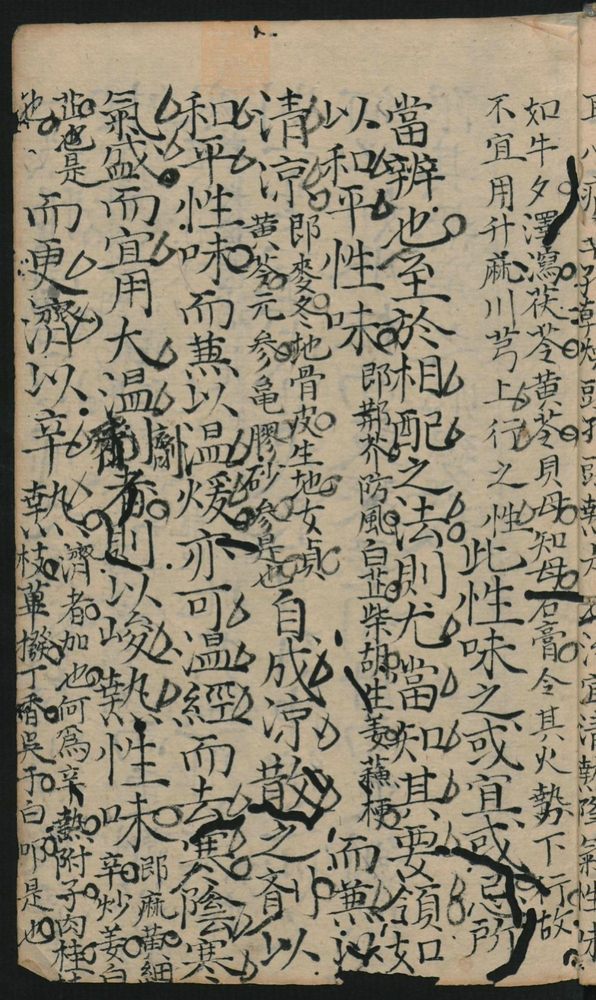 如牛夕澤瀉茯苓黄芩貝母知母石膏令其火勢下行故
不宜用升麻川芎上行之性
此性味之或宜或忌所
當辨也至於相配之法則尤當知其要領如
以和平性味
即荆芥防風白芷柴胡生姜蘓梗
而兼以
清涼
即麥冬地骨皮生地女貞
黄芩元參亀膠砂參是也
自成涼散之斉以
和平性味而兼以温煖亦可温經而去寒陰寒
氣盛而宜用大温劑者則以峻熱性味
即麻黄細
辛炒姜白
芷也是
而更濟以辛熱
濟者加也何爲辛熱附子肉桂
枝蓽撥丁香吳于白叩是也